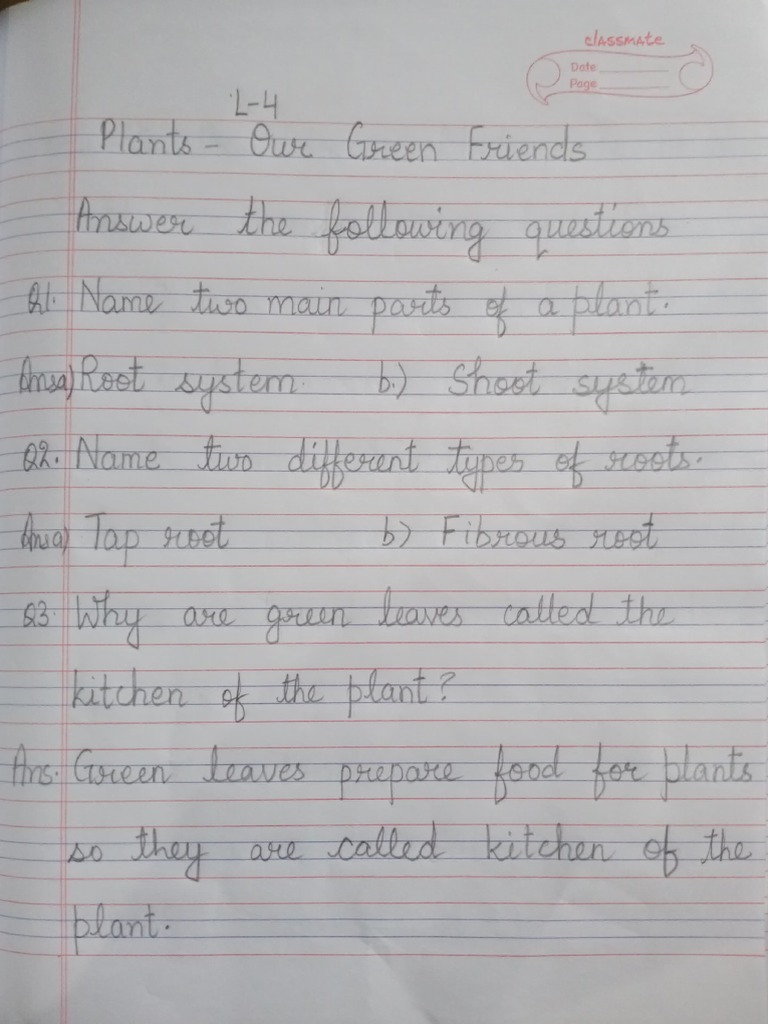 classmate
Date
Page
L-4
Plants - Our Green Friends
Answer the following questions
Q1. Name two main parts of a plant.
Ans a) Root system. b.) Shoot system
Q2. Name two different types of roots.
Ans a) Tap root b) Fibrous root
Q3. Why are green leaves called the
kitchen of the plant?
Ans. Green leaves prepare food for plants
so they are called kitchen of the
plant.